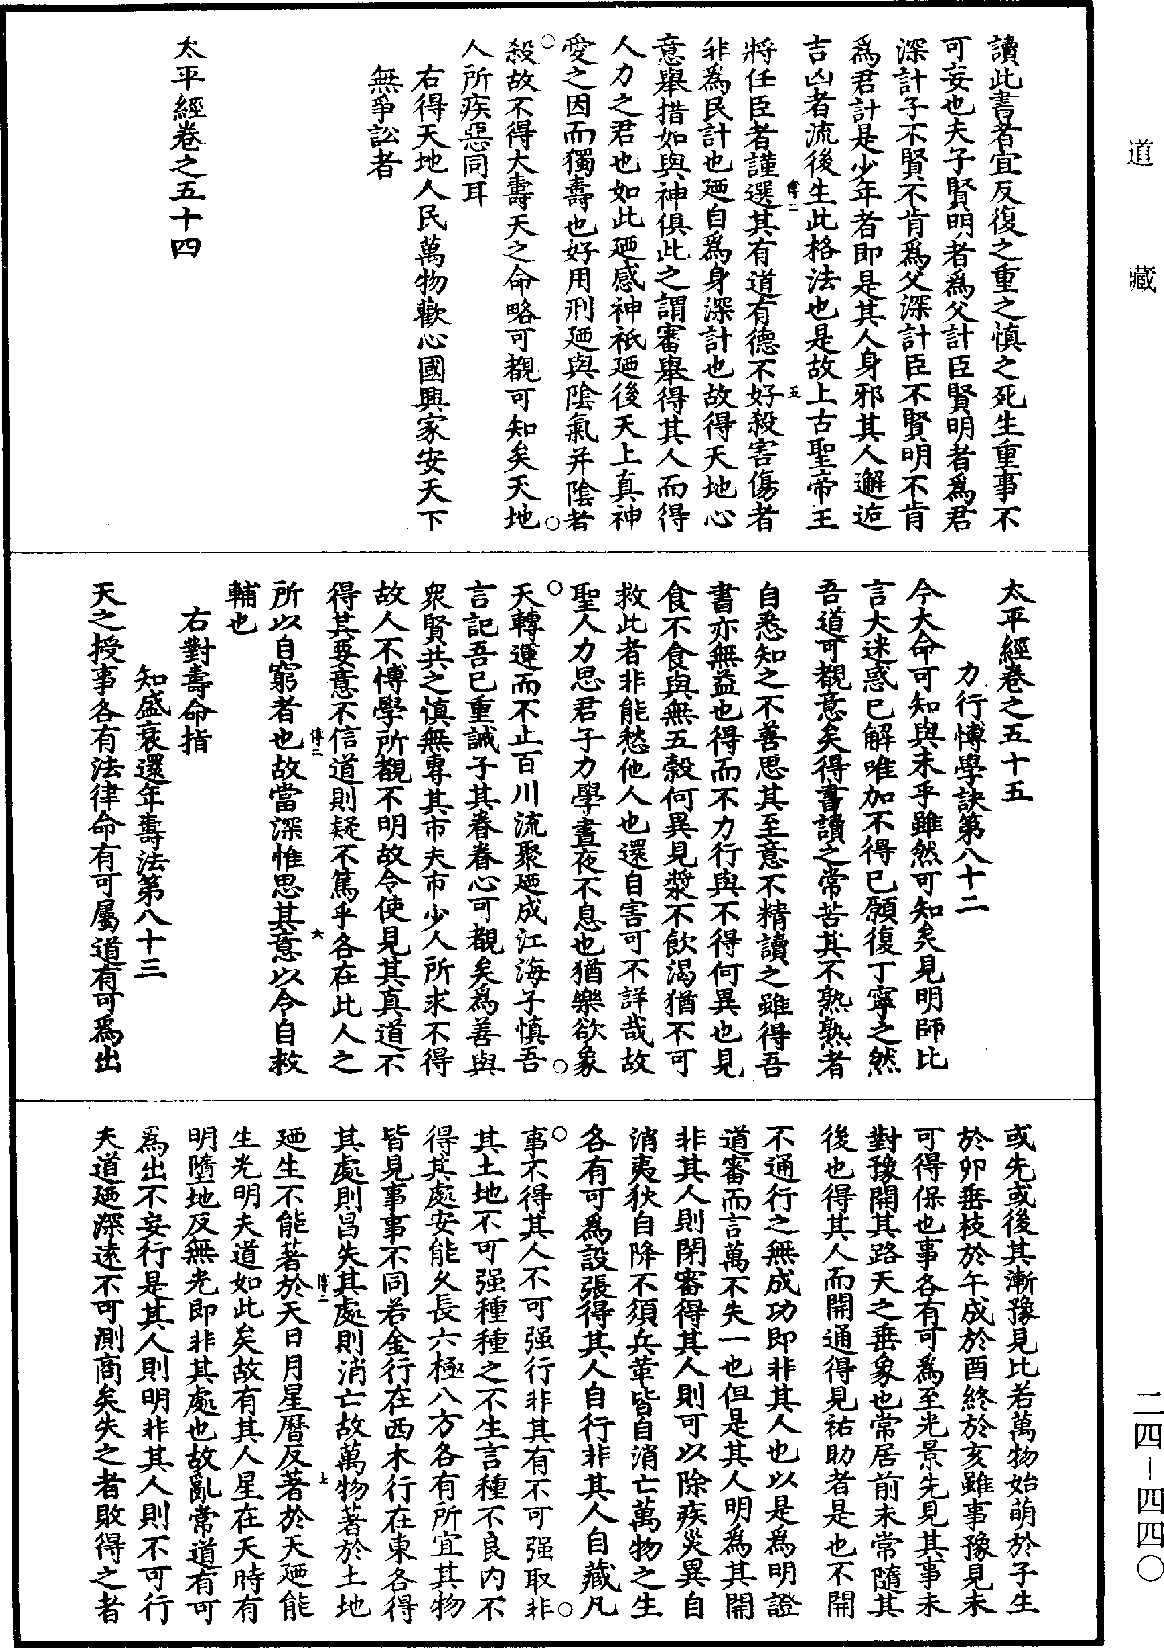 道藏
讀此書者宜反復之重之慎之死生重事不
可妄也夫子賢明者為父計臣賢明者為君
深計子不賢不肯為父深計臣不賢明不肯
為君計是少年者即是其人身邪其人邂逅
吉凶者流後生此格法也是故上古聖帝王
將任臣者謹選其有道有德不好殺害傷者
非為民計也廼自為身深計也故得天地心
意舉措如與神俱此之謂審舉得其人而得
人力之君也如此廼感神祇廼後天上真神
愛之因而獨壽也好用刑廼與陰氣并陰者
殺故不得大壽天之命略可覩可知矣天地
人所疾惡同耳
右得天地人民萬物歡心國興家安天下
無爭訟者
太平經卷之五十四
太平經卷之五十五
力行博學訣第八十二
今大命可知與未乎雖然可知矣見明師比
言大迷惑已解唯加不得已願復丁寧之然
吾道可覩意矣得書讀之常苦其不熟熟者
自悉知之不善思其至意不精讀之雖得吾
書亦無益也得而不力行與不得何異也見
食不食與無五穀何異見漿不飲渴猶不可
救此者非能愁他人也還自害可不詳哉故
聖人力思君子力學晝夜不息也猶樂欲象
天轉運而不止百川流聚廼成江海子慎吾
言記吾已重誡子其眷眷心可覩矣為善與
眾賢共之慎無專其市夫市少人所求不得
故人不博學所覩不明故令使見其真道不
得其要意不信道則疑不篤乎各在此人之
所以自窮者也故當深惟思其意以令自救
輔也
右對壽命指
知盛衰還年壽法第八十三
天之授事各有法律命有可屬道有可為出
或先或後其漸豫見比若萬物始萌於子生
於卯垂枝於午成於酉終於亥雖事豫見未
可得保也事各有可為至光景先見其事未
對豫開其路天之垂象也常居前未常隨其
後也得其人而開通得見祐助者是也不開
不通行之無成功即非其人也以是為明證
道審而言萬不失一也但是其人明為其開
非其人則閉審得其人則可以除疾災異自
消夷狄自降不須兵革皆自消亡萬物之生
各有可為設張得其人自行非其人自藏凡
事不得其人不可強行非其有不可強取非
其土地不可強種種之不生言種不良內不
得其處安能久長六極八方各有所宜其物
皆見事事不同若金行在西木行在東各得
其處則昌失其處則消亡故萬物著於土地
廼生不能著於天日月星曆反著於天廼能
生光明夫道如此矣故有其人星在天時有
明墮地反無光即非其處也故亂常道有可
為出不妄行是其人則明非其人則不可行
夫道廼深遠不可測商矣失之者敗得之者
傅二
五
傅二
六
傅二
七
二四－四四〇